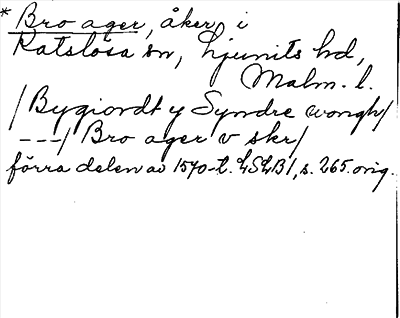 * Bro ager, åker i
Katslösa sn, Ljunits hd,
Malm. l.
/Bygiordt y Syndre wongh/
---/ Bro ager v skr/
förra delen av 1570-t. LSLB1, s. 265. orig.